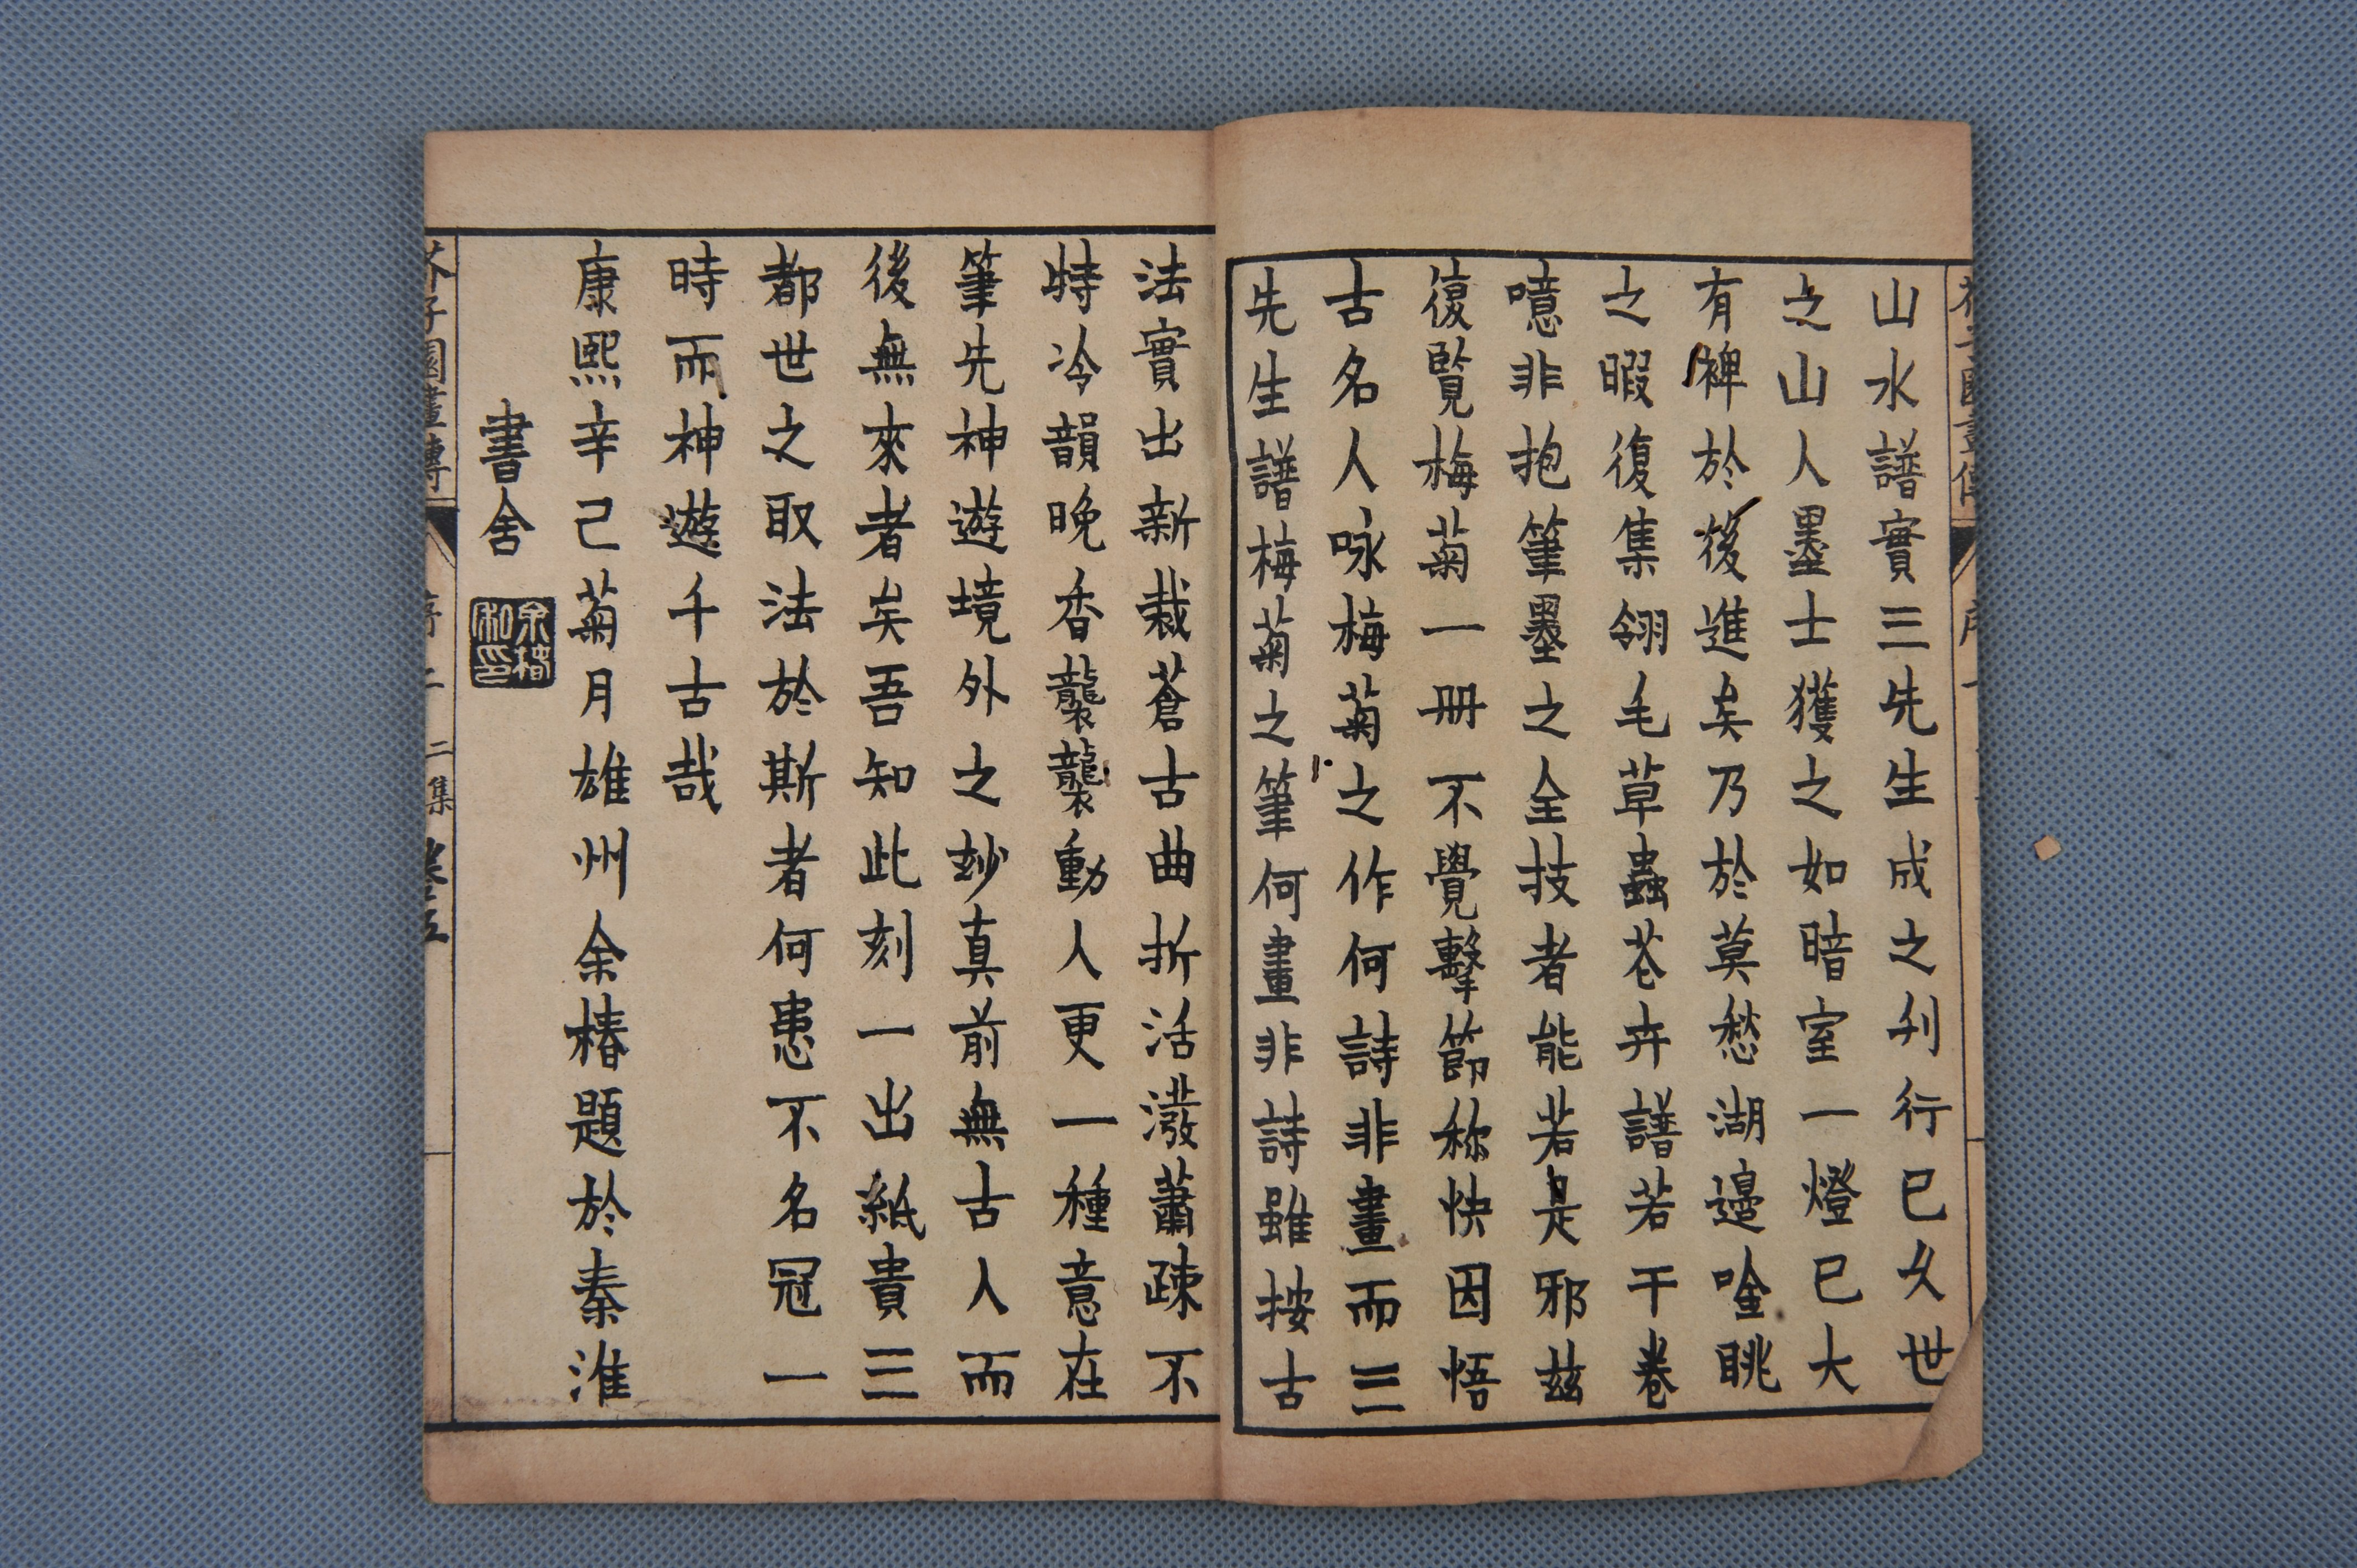 山水譜實三先生成之刋行已久世
之山人墨士獲之如暗室一燈已大
有裨於後進矣乃於莫愁湖邉唫眺
之暇復集翎毛草蟲花卉譜若干卷
噫非抱筆墨之全技者能若是邪茲
復覧梅菊一册不覺擊節称快因悟
古名人咏梅菊之作何詩非畫而三
先生譜梅菊之筆何畫非詩雖按古
法實出新裁蒼古曲折活潑蕭疎不
特冷韻晚香襲襲動人更一種意在
筆先神遊境外之玅真前無古人而
後無來者矣吾知此刻一出紙貴三
都世之取法於斯者何患不名冠一
時而神遊千古哉
康熙辛己菊月雄州余椿題於秦淮
書舍
余椿
和印
芥子園畫傳
序 二 二集 卷五